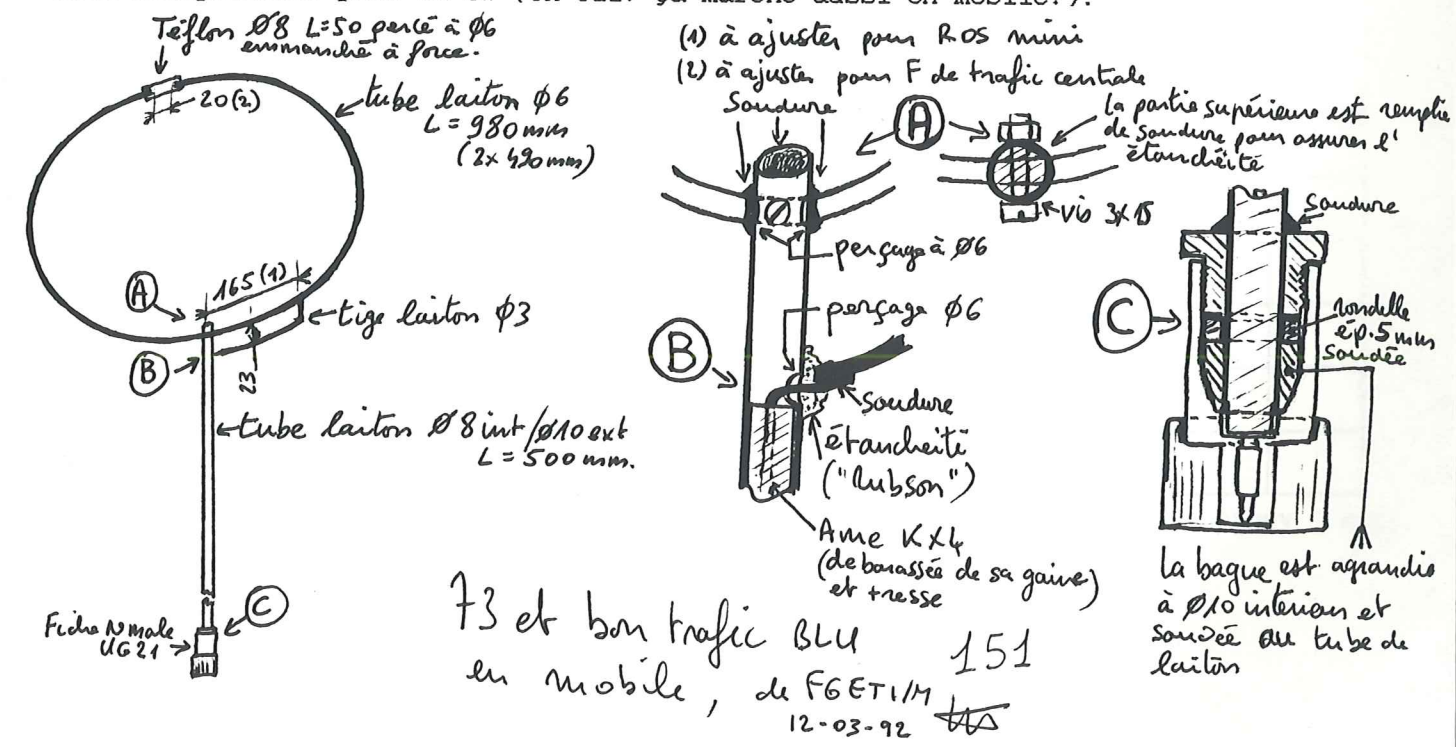 Téflon Ø8 L=50 percé à Ø6
emmanché à force.
20(2)
tube laiton Ø6
L = 980mm
(2x490mm)
A
165(1)
tige laiton Ø3
B
23
tube laiton Ø8 int/Ø10 ext
L = 500mm.
C
Fiche N male
UG21
(1) à ajuster pour ROS mini
(2) à ajuster pour F de trafic centrale
Soudure
A
la partie supérieure est remplie
de soudure pour assurer l'
étanchéité
vis 3x15
perçage à Ø6
perçage Ø6
B
soudure
étanchéité
("Rubson")
Ame KX4
(debarassée de sa gaine)
et tresse
soudure
C
rondelle
ép. 5mm
soudée
la bague est agrandie
à Ø10 intérieur et
soudée au tube de
laiton
73 et bon trafic BLU
en mobile, de F6ETI/M
12-03-92
151